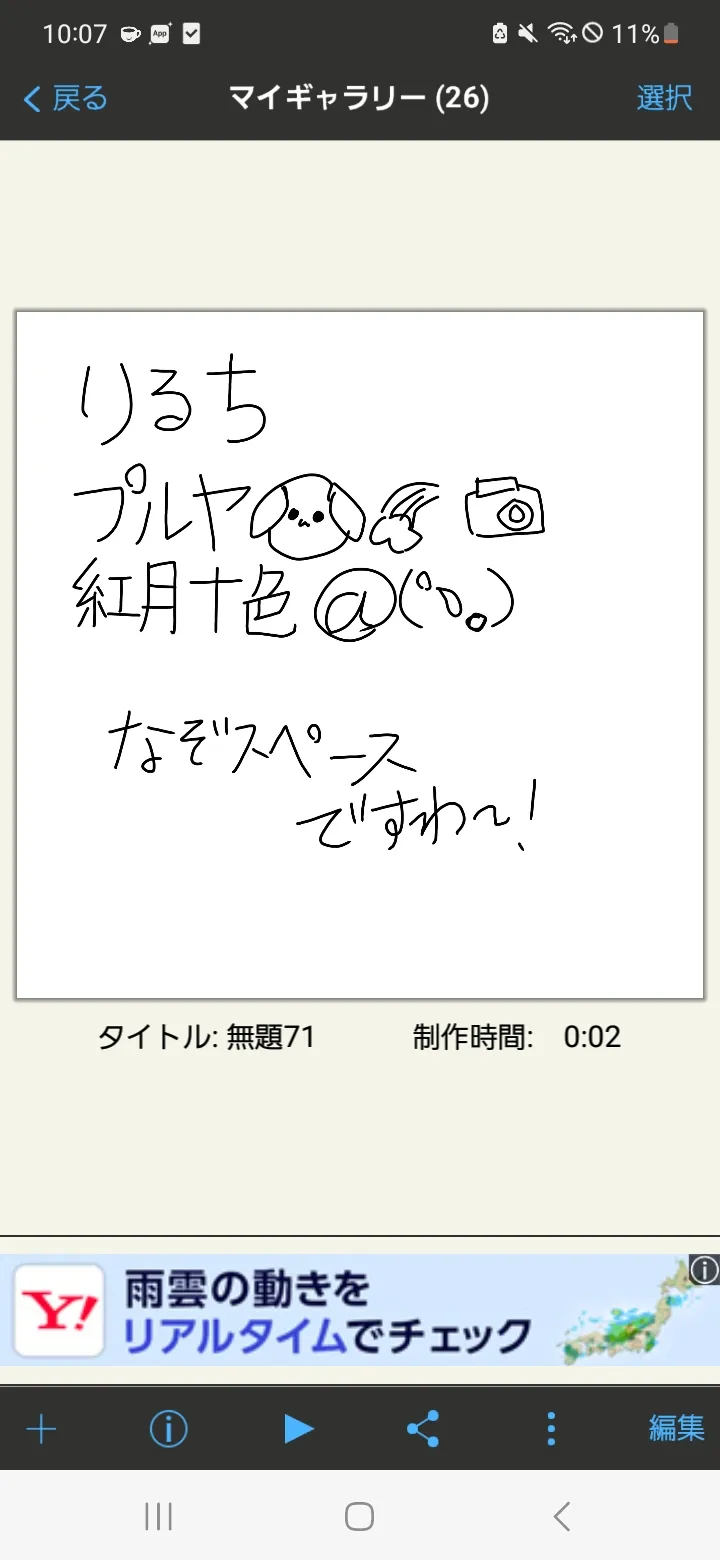 10:07 App 11%
戻る マイギャラリー (26) 選択
りるち
プルヤ
紅月十色@(°ο。)
なぞスペース
ですわ〜!
タイトル: 無題71 制作時間: 0:02
Y! 雨雲の動きを
リアルタイムでチェック
編集